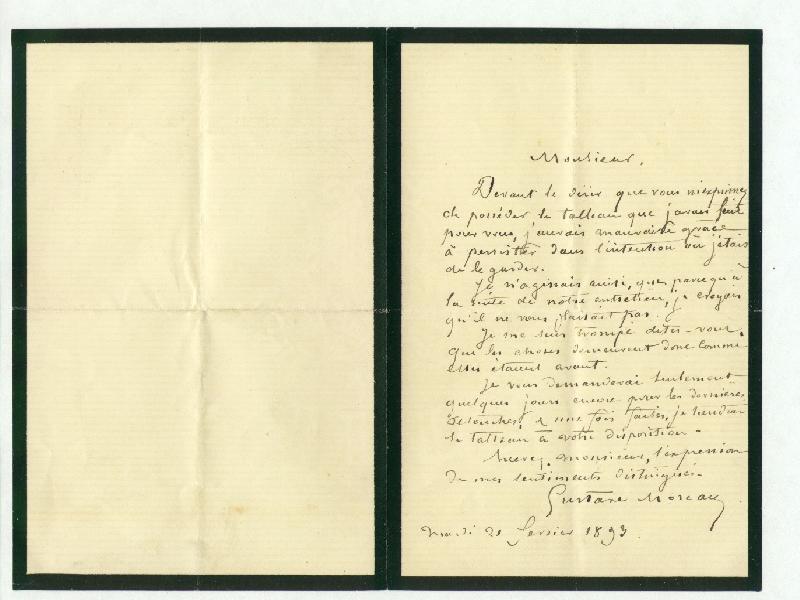 Monsieur,
Devant le désir que vous m'exprimez
de posséder le tableau que j'avais fait
pour vous, j'aurais mauvaise grâce
à persister dans l'intention où j'étais
de le garder.
Je n'agissais ainsi, que parcequ'à
la suite de notre entretien, je croyais
qu'il ne vous plaisait pas.
Je me suis trompé dites-vous,
que les choses demeurent donc comme
elles étaient avant.
Je vous demanderai seulement
quelques jours encore pour les dernières
retouches, & une fois faites, je tiendrai
le tableau à votre disposition.
Agréez, monsieur, l'expression
de mes sentiments distingués.
Gustave Moreau
Mardi 21 février 1893